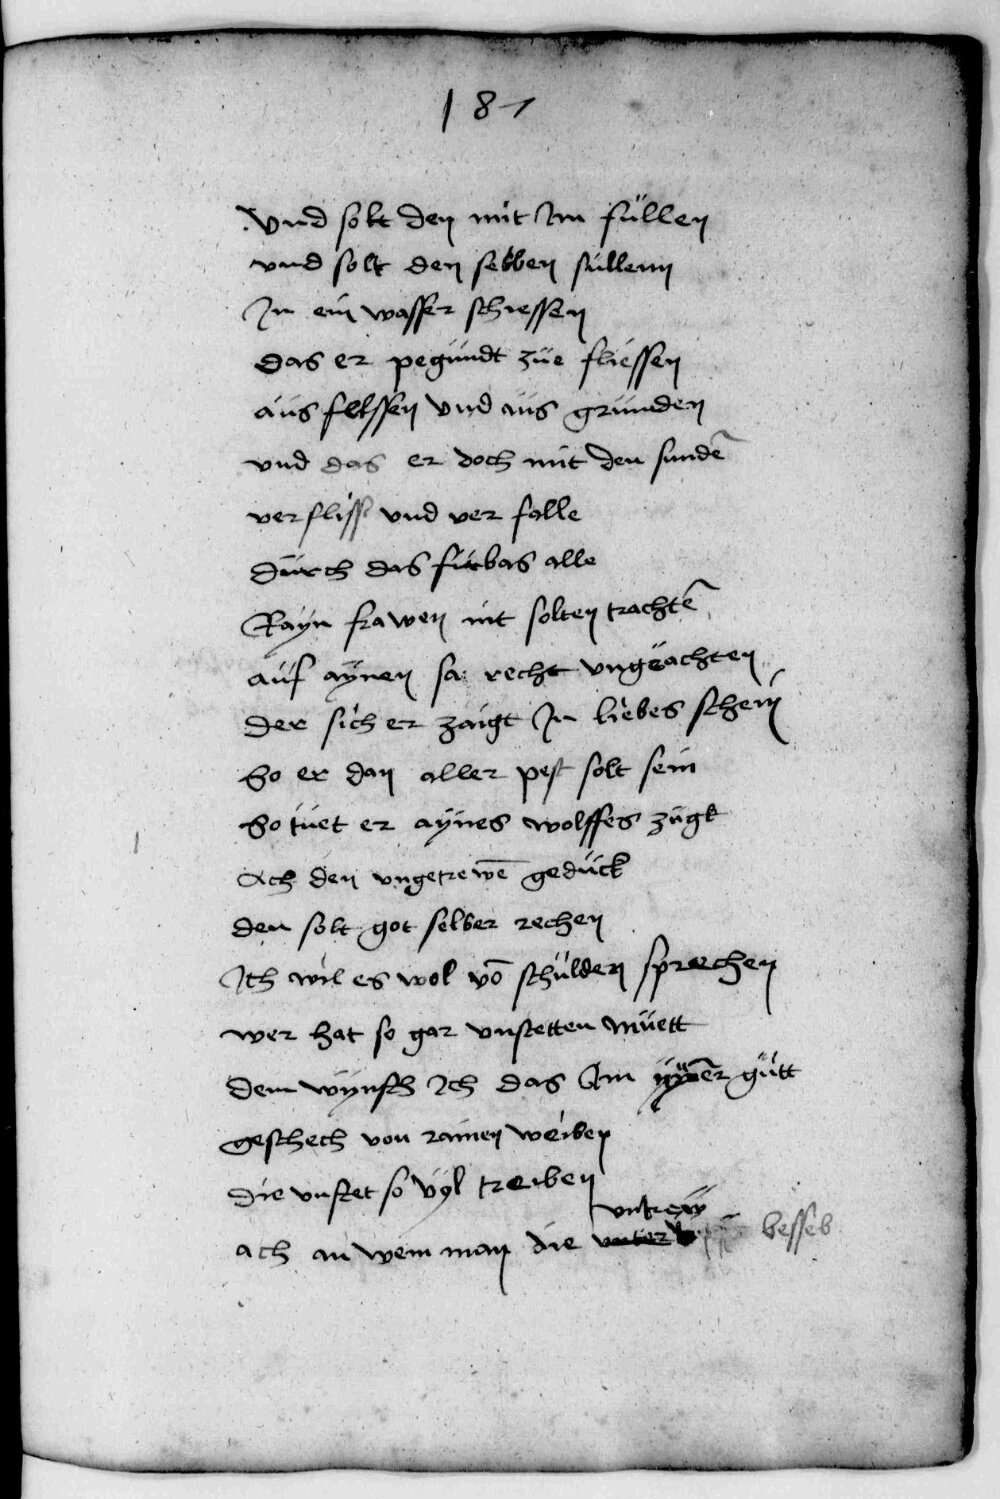 187
Vnd solt den mit Im füllen
vnd solt den selben süllenn
In ein wasser schiessen
das er pegundt züe fliessen
aüs felssen vnd aüs grunden
vnd das er doch mit den sundē
verfliss vnd ver falle
dürch das fürbas alle
Rayn frawen nit solten trachtē
aüf aÿnen sa recht vngeachten
der sich er zaigt In liebes schein
So er dan aller pest solt sein
So tüet er aÿnes wolffes zügk
Ach den vngetrewē gedück
den solt got selber rechen
Ich wil es wol vō schülden sprechen
wer hat so gar vnstetten müett
dem wÿnsch Ich das Im gütt
geschech von rainen weiben
die vnstet so vÿl treiben
vntreẅ
ach an wem man die besseb